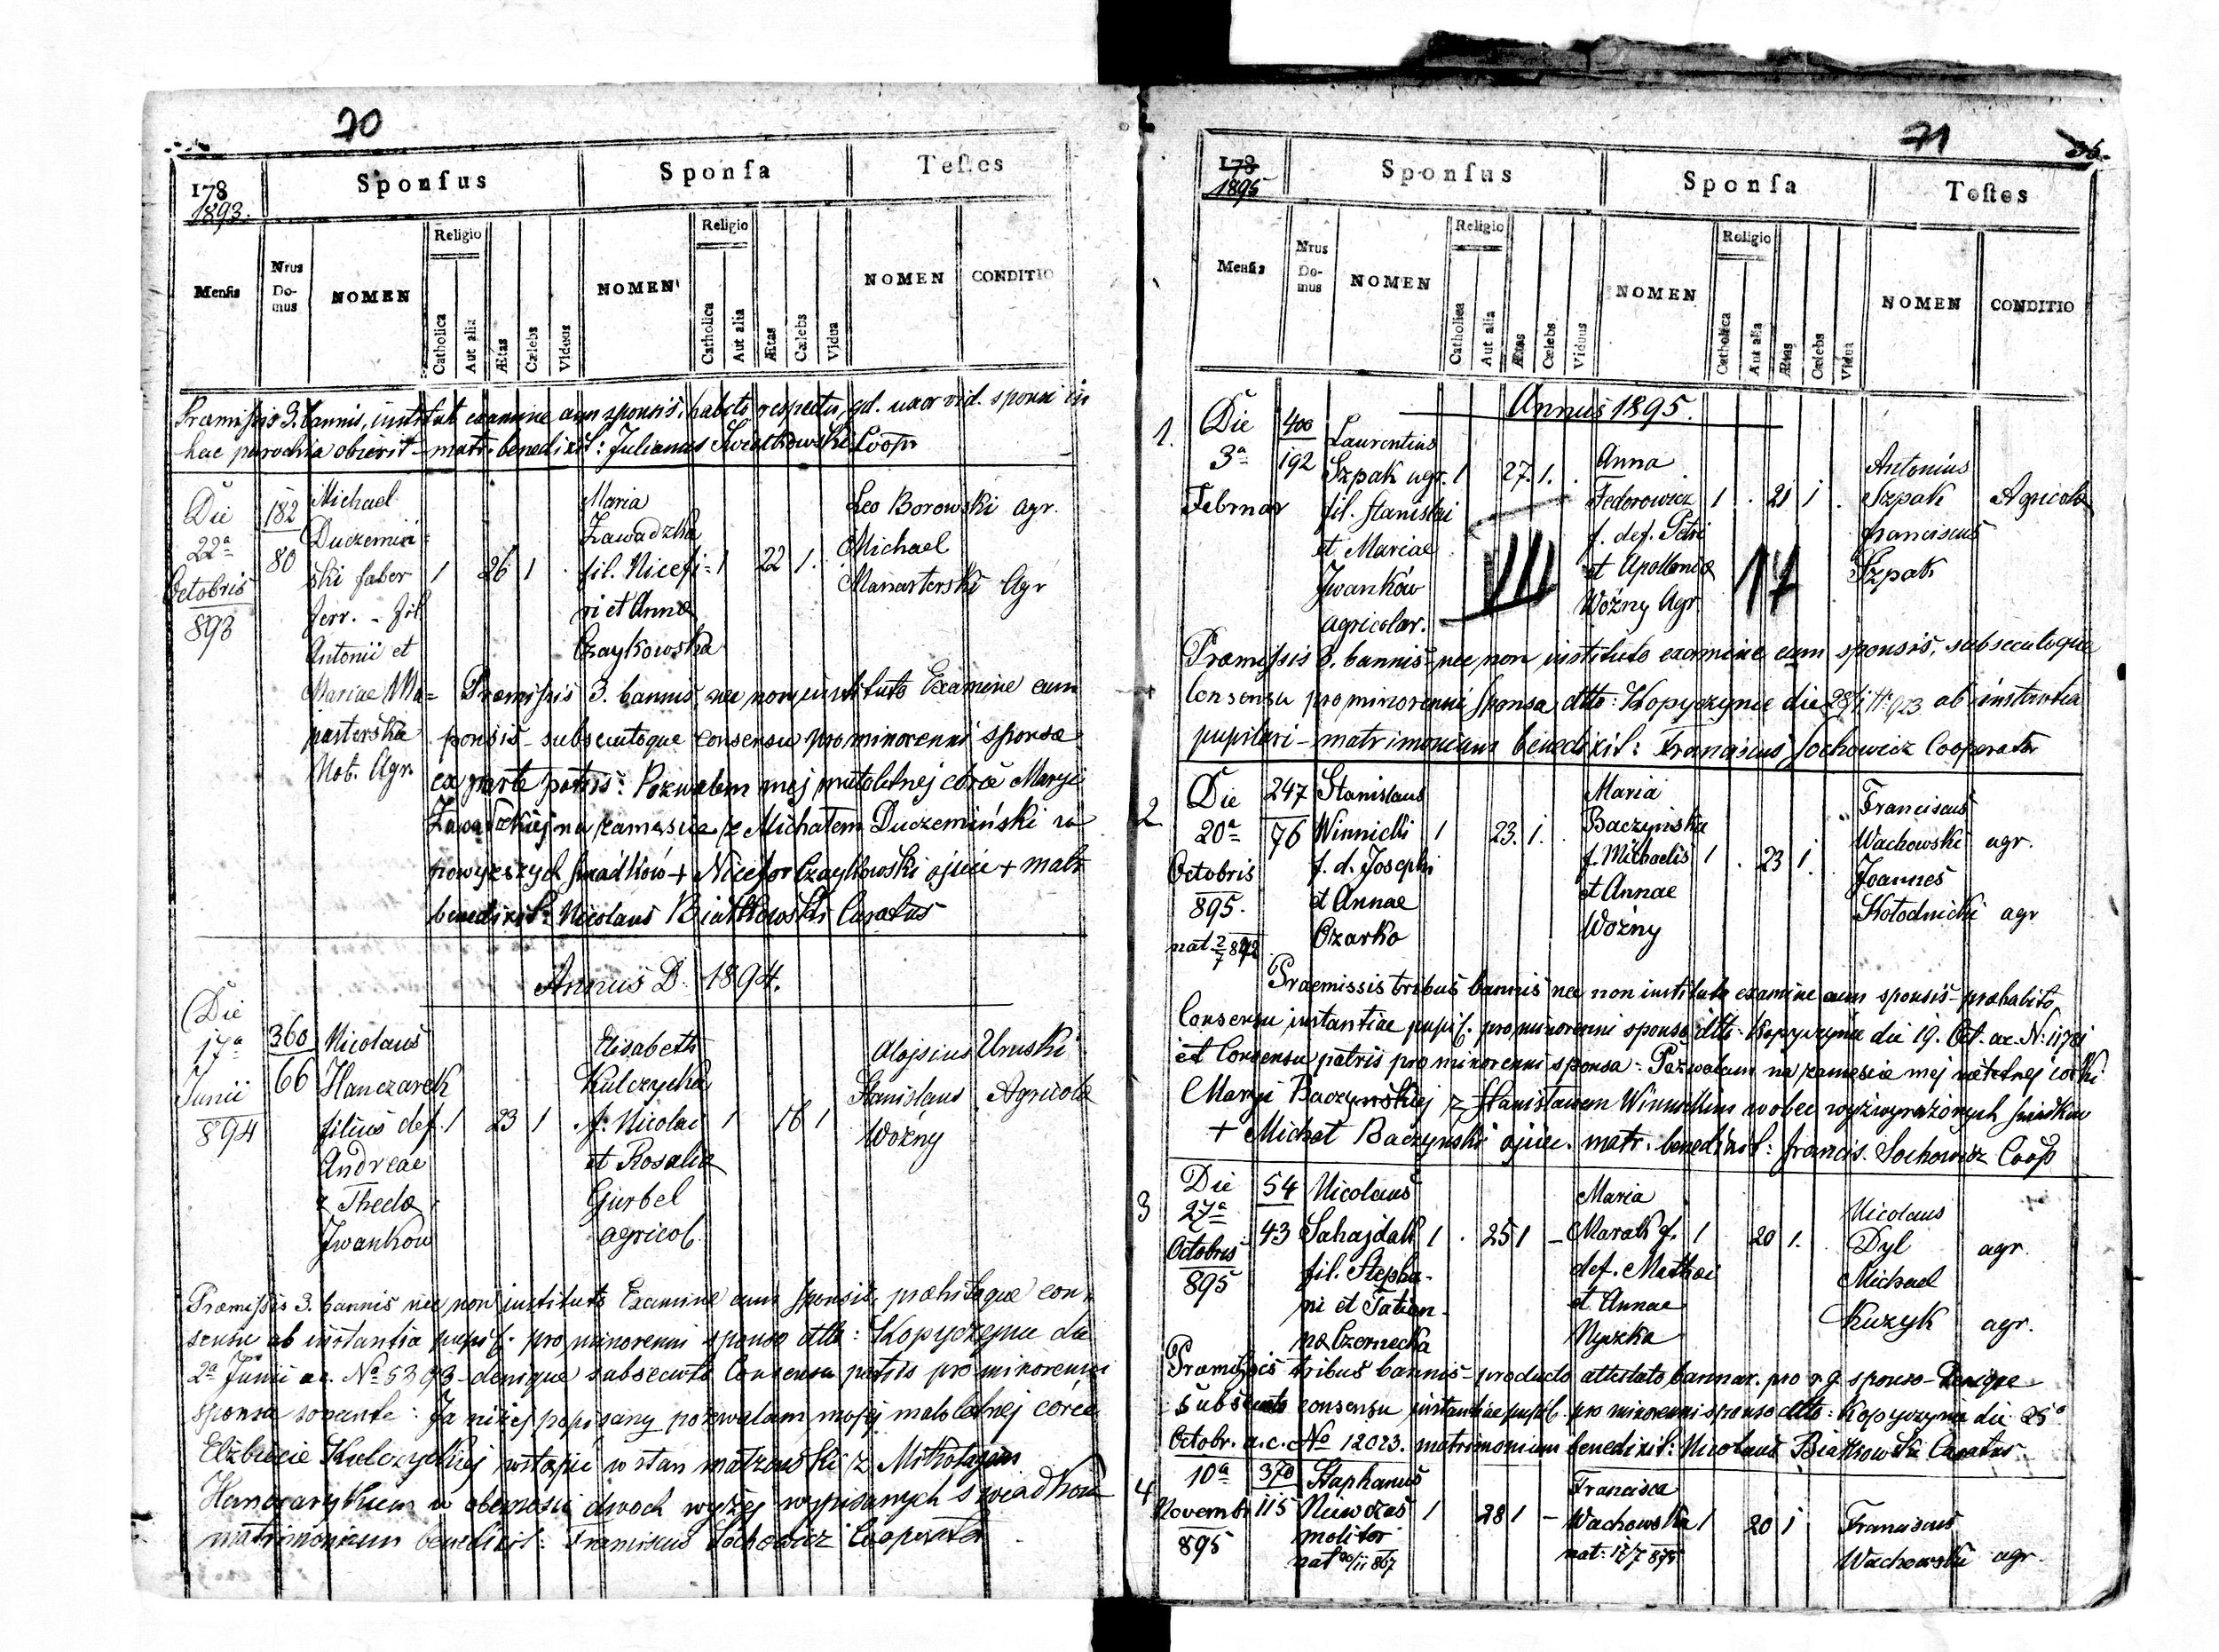 70
178
1893.
Sponsus
Sponsa
Testes
Mensis
Nrus Domus
NOMEN
Religio
Catholica
Aut alia
Ætas
Cælebs
Viduus
NOMEN
Religio
Catholica
Aut alia
Ætas
Cælebs
Vidua
NOMEN
CONDITIO
Præmissis 3. bannis, institut examine cum sponsis, habito respectu, qd. uxor vid. sponsi in
hac parochia obierit - matr. benedixit: Julianus Kwiatkowski Coop
Die
22a
Octobris
893
182
80
Michael
Duczemiń=
ski faber
ferr. - fil
Antonii et
Mariae Ma=
nasterska
Nob. Agr.
1
26
1
Maria
Zawadzka
fil. Nicefo=
ri et Anna
Czaykowska
1
22
1.
Leo Borowski agr.
Michael
Manasterski Agr
Præmissis 3. bannis, nec non instituto Examine cum
sponsis - subsecutoque consensu pro minorenni sponsa
ex parte patris: Pozwalam mej małoletnej córce Maryi
Zawadzkiej na zamęscie z Michałem Duczemiński w
powyższych swiadków + Nicefor Czaykowski ojciec + matr
benedixit: Nicolaus Białkowski Curatus
Annus D. 1894.
Die
17a
Junii
894
360
66
Nicolaus
Hanczaryk
filius def.
Andreae
& Theda
Iwanków
1
23
1
Elisabeth
Kulczycka
f. Nicolai
et Rosalia
Gurbel
agricol.
1
16
1
Alojsius Uruski
Stanislaus Agricola
Woźny
Præmissis 3. bannis nec non instituto Examine cum sponsis, præhabitoque con=
sensu ab instantia pupil. pro minorenni sponso dtto: Kopyczynce die
2a Junii a.c. No 5393 - denique subsecuto Consensu patris pro minorenni
sponsa sonante: Ja niżej popisany pozwalam mojej małoletnej córce
Elżbiecie Kulczyckiej wstąpić w stan matrzenski z Mikołajem
Hanczarykiem w obecnosci dwoch wyżej wypisanych swiadków
matrimonium benedixit: Franciscus Sochowicz Cooperator
71
36.
178
1895
Sponsus
Sponsa
Testes
Mensis
Nrus Domus
NOMEN
Religio
Catholica
Aut alia
Ætas
Cælebs
Viduus
NOMEN
Religio
Catholica
Aut alia
Ætas
Cælebs
Vidua
NOMEN
CONDITIO
Annus 1895.
1.
Die
3a
Februar
400
192
Laurentius
Szpak agr.
fil. Stanislai
et Mariae
Iwanków
agricolar.
1
27.
1.
VII
Anna
Fedorowicz
f. def. Petri
et Apollonia
Woźny Agr.
1
21
1
17
Antonius
Szpak Agricola
Franciscus
Szpak
Præmissis 3. bannis - nec non instituto examine cum sponsis, subsecutoque
Consensu pro minorenni sponsa dtto: Kopyczynce die 28/1 No 923 ab instantia
pupilari - matrimonium benedixit: Franciscus Sochowicz Cooperator
2
Die
20a
Octobris
895.
nat 2/7 872
247
76
Stanislaus
Winnicki
f. d. Josephi
et Annae
Czarko
1
23.
1.
Maria
Baczyńska
f. Michaelis
et Annae
Woźny
1
23
1.
Franciscus
Wachowski agr.
Joannes
Kołodnicki agr
Praemissis tribus bannis nec non instituto examine cum sponsis - praehabito
Consensu instantiae pupil. pro minorenni sponso dtto: Kopyczynce die 19. Oct. ac. N: 11781
et Consensu patris pro minorenni sponsa - Pozwalam na zamescie mej córki
Maryi Baczyńskiej z Stanisławem Winnickim wobec wyżwyrażonych swiadków
+ Michał Baczyński ojciec. matr. benedixit: Francis. Sochowicz Coop
3
Die
27a
Octobris
895
54
43
Nicolaus
Sahajdak
fil. Stepha-
ni et Tatian-
na Czornecka
1
25
1
Maria
Marak f.
def. Mathei
et Annae
Nyszka
1
20
1.
Nicolaus
Dyl agr.
Michael
Kuzyk agr.
Præmissis tribus bannis - producto attestato bannar. pro r.g. sponso - Denique
Subsecuto consensu instantiae pupil. pro minorenni sponso dtto: Kopyczynce die 25a
Octobr. a.c. No 12023. matrimonium benedixit: Nicolaus Białkowski Curatus
4
10a
Novembr
895
370
115
Staphanus
Niewczas
molitor
nat 20/11 867
1
28
1
Francisca
Wachowska
nat: 17/7 875
1
20
1
Franciscus
Wachowski agr.